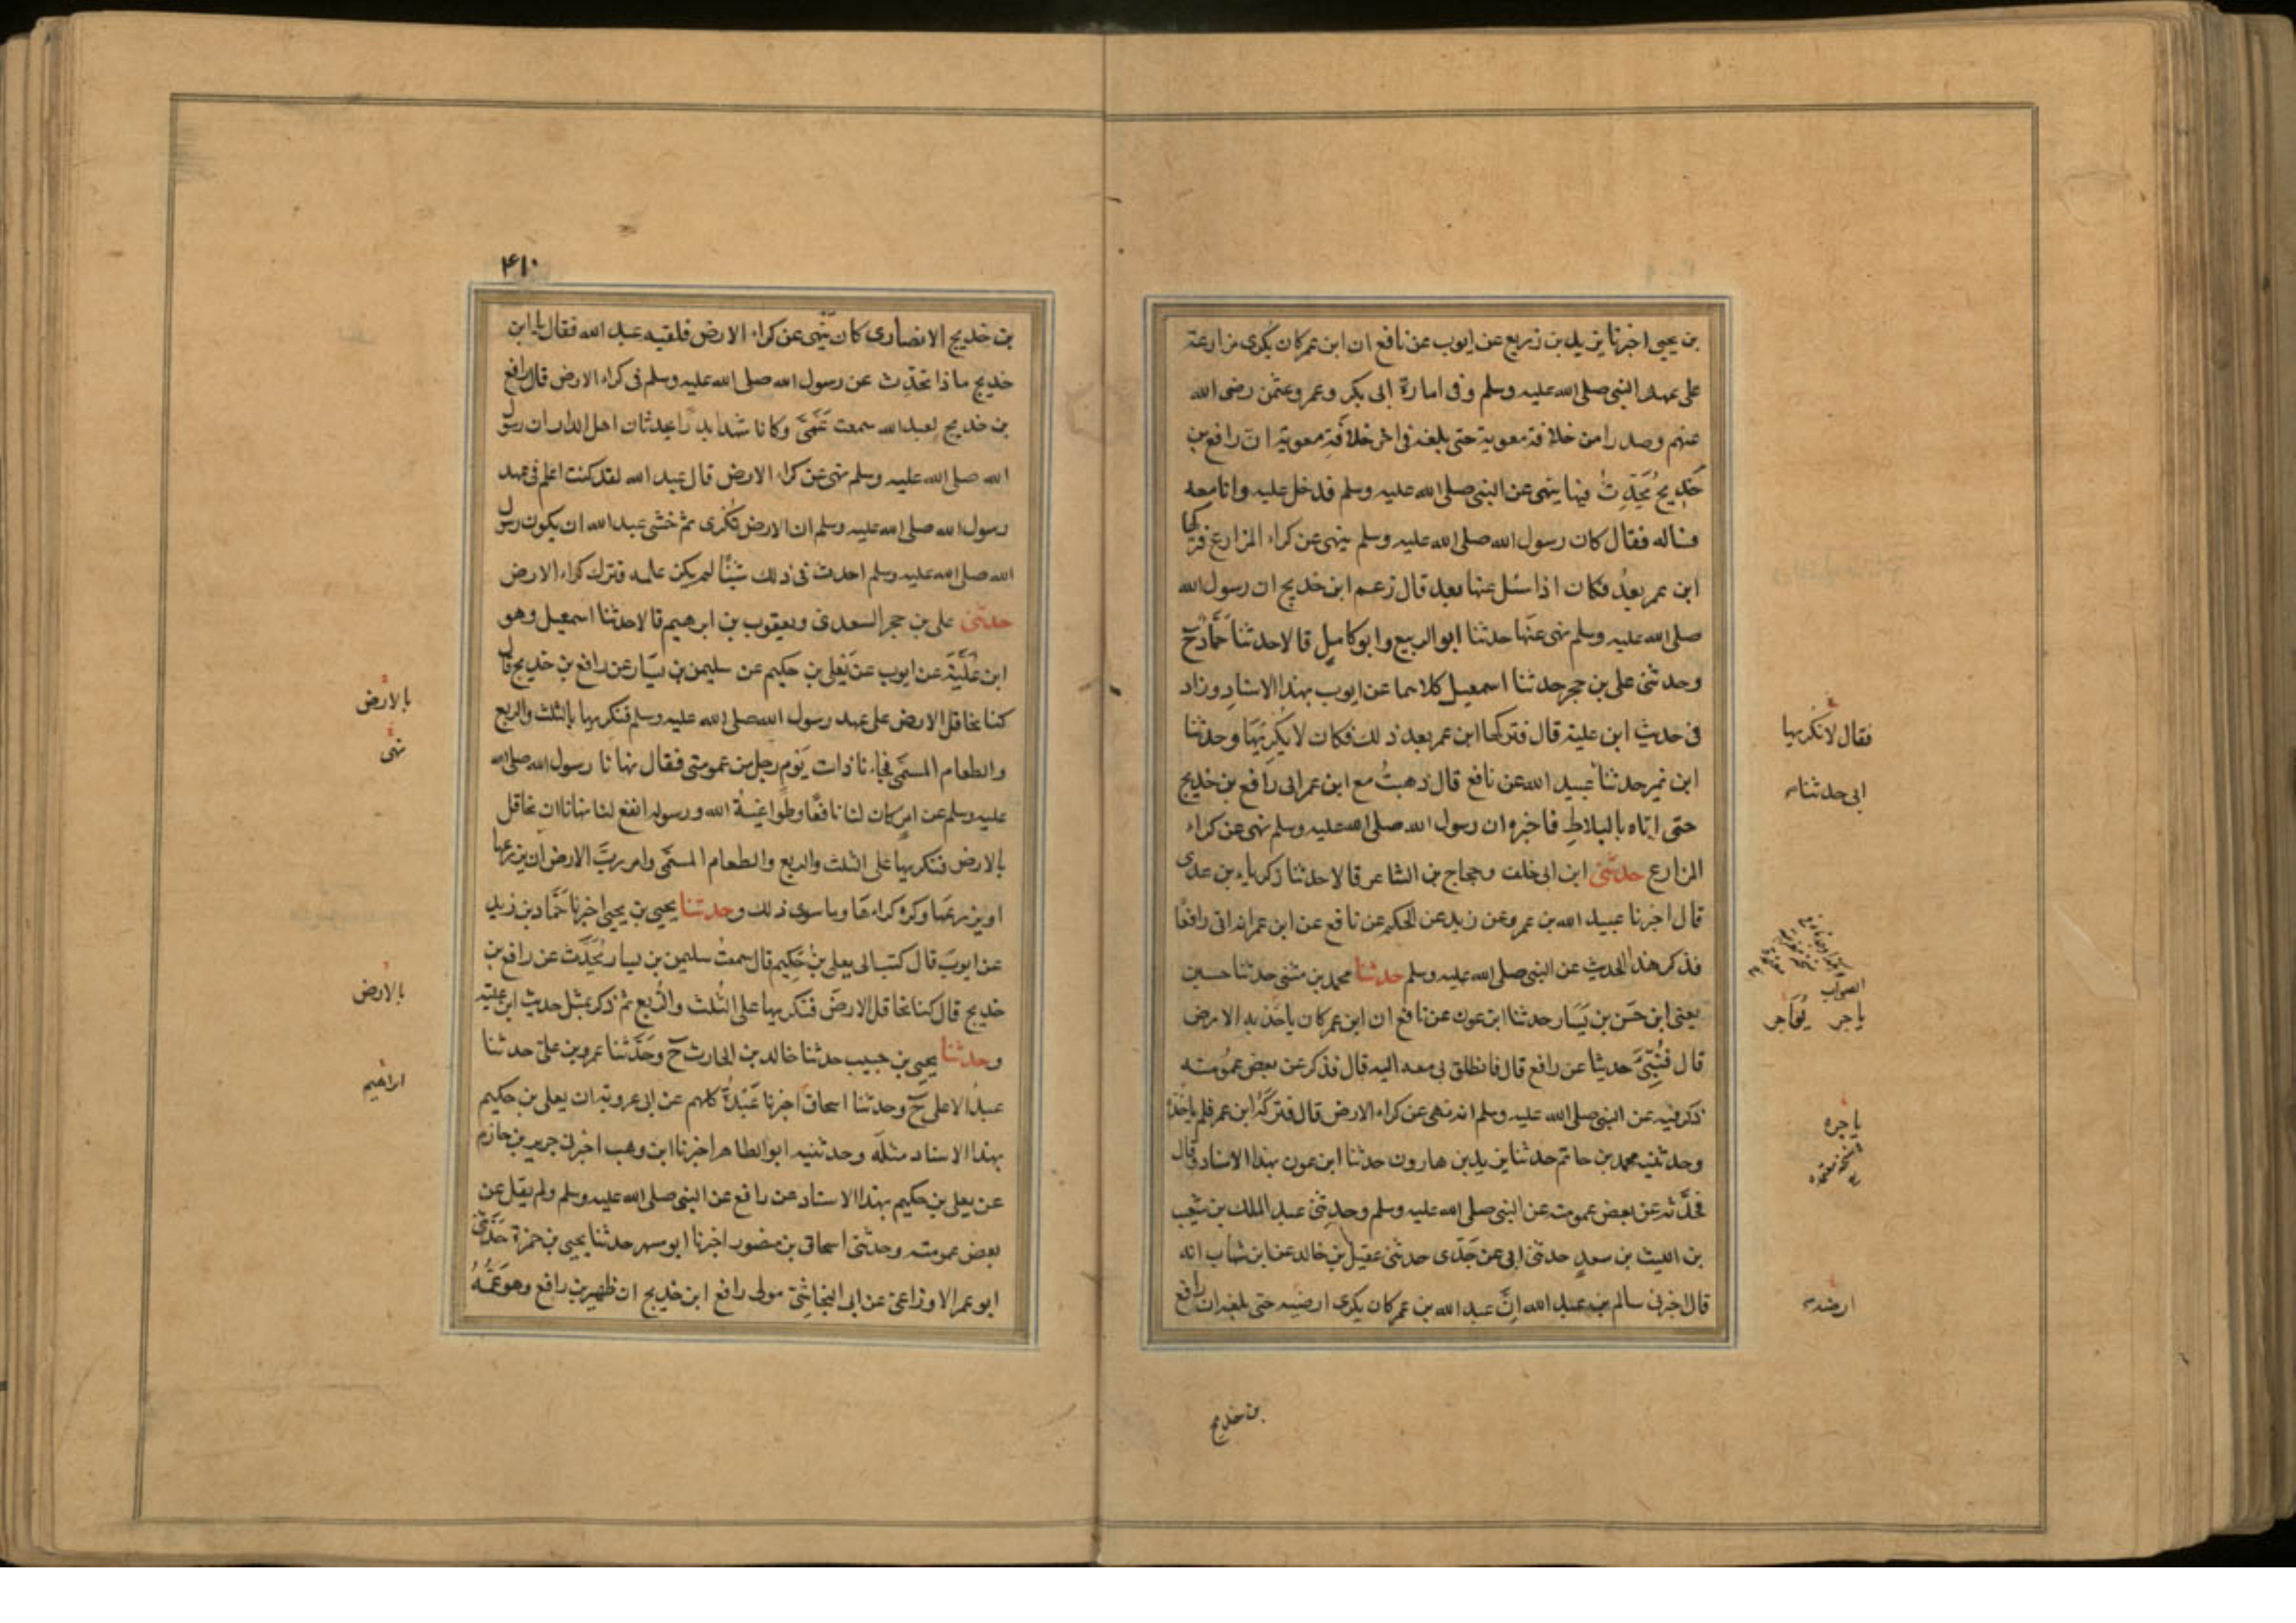 بن يحيى اخبرنا يزيد بن زريع عن ايوب عن نافع ان ابن عمر كان يكرى مزارعة
على عهد النبى صلى الله عليه وسلم وفى امارة ابى بكر وعمر وعثمن رضى الله
عنهم وصدرا من خلافة معوية حتى بلغه فى اخر خلافة معوية ان رافع بن
خَدِيجٍ يُحَدِّثُ فيها ينهى عن النبى صلى الله عليه وسلم فدخل عليه وانا معه
فساله فقال كان رسول الله صلى الله عليه وسلم ينهى عن كراء المزارع فتركها
ابن عمر بعدُ فكان اذا سئل عنها بعد قال زعم ابن خديج ان رسول الله
صلى الله عليه وسلم نهى عنها حدثنا ابو الربيع وابو كامل قالا حدثنا حَمَّادٌ ح
وحدثنى على بن حجر حدثنا اسمعيل كلاهما عن ايوب بهذا الاسناد وزاد
فى حديث ابن علية قال فتركها ابن عمر بعد ذلك فكان لا يُكْرِيهَا وحدثنا
ابن نمير حدثنا عبيد الله عن نافع قال ذهبتُ مع ابن عمر الى رافع بن خديج
حتى اتاه بالبلاط فاخبره ان رسول الله صلى الله عليه وسلم نهى عن كراء
المزارع حدثنى ابن ابى خلف وحجاج بن الشاعر قالا حدثنا زكرياء بن عدى
قال اخبرنا عبيد الله بن عمرو عن زيد عن الحكم عن نافع عن ابن عمر انه اتى رافعًا
فذكر هذا الحديث عن النبى صلى الله عليه وسلم حدثنا محمد بن مثنى حدثنا حسين
يعنى ابن حَسَن بن يَسَار حدثنا ابن عون عن نافع ان ابن عمر كان ياخذ به الارض
قال فَنُبِّئَ حديثا عن رافع قال فانطلق بى معه اليه قال فذكر عن بعض عمومته
ذكر فيه عن النبى صلى الله عليه وسلم انه نهى عن كراء الارض قال فتركه ابن عمر فلم ياخذه
وحدثنيه محمد بن حاتم حدثنا يزيد بن هارون حدثنا ابن عون بهذا الاسناد وقال
فحدَّثه عن بعض عمومته عن النبى صلى الله عليه وسلم وحدثنى عبد الملك بن شعيب
بن الليث بن سعد حدثنى ابى عن جَدّى حدثنى عقيل بن خالد عن ابن شهاب انه
قال اخبرنى سالم بن عبد الله انّ عبد الله بن عمر كان يكرى ارضيه حتى بلغه ان رافع
بن خديج
فقال لا نكريها
ابى حدثنا
الصواب
ياجر يؤاجر
ياجره
ارضه
٤١٠
بن خديج الانصارى كان ينهى عن كراء الارض فلقيه عبد الله فقال يا ابن
خديج ماذا تحدّث عن رسول الله صلى الله عليه وسلم فى كراء الارض قال رافع
بن خديج لعبد الله سمعت عَمَّىَّ وكانا شهدا بدرًا يحدثان اهل الدار ان رسول
الله صلى الله عليه وسلم نهى عن كراء الارض قال عبد الله لقد كنت اعلم فى عهد
رسول الله صلى الله عليه وسلم ان الارض تكرى ثم خشى عبد الله ان يكون رسول
الله صلى الله عليه وسلم احدث فى ذلك شيئًا لم يكن علمه فترك كراء الارض
حدثنى على بن حجر السعدى ويعقوب بن ابرهيم قالا حدثنا اسمعيل وهو
ابن عُلَيَّةَ عن ايوب عن يَعْلى بن حكيم عن سليمن بن يسار عن رافع بن خديج قال
كنا نحاقل الارض على عهد رسول الله صلى الله عليه وسلم فنكريها بالثلث والربع
والطعام المسمّى فجاءنا ذات يَوْمٍ رجل من عمومتى فقال نهانا رسول الله صلى الله
عليه وسلم عن امر كان لنا نافعًا وطواعيةُ الله ورسوله انفع لنا نهانا ان نحاقل
بالارض فنكريها على الثلث والربع والطعام المسمّى وامر ربَّ الارض ان يزرعها
او يزرعها وكره كراءها وما سوى ذلك وحدثنا يحيى بن يحيى اخبرنا حَمَّاد بن زيد
عن ايوبَ قال كتب الى يعلى بن حَكِيم قال سمعتُ سليمن بن يسار يُحَدِّث عن رافع بن
خديج قال كنا نحاقل الارضَ فنكريها على الثُلث والرُّبع ثم ذكر بمثل حديث ابن علية
وحدثنا يحيى بن حبيب حدثنا خالد بن الحارث ح وحَدَّثنا عمرو بن على حدثنا
عبدُ الاعلى ح وحدثنا اسحاق اخبرنا عَبْدَةُ كلهم عن ابى عروبة ان يعلى بن حكيم
بهذا الاسناد مثلَه وحدثنيه ابو الطاهر اخبرنا ابن وهب اخبرنى جرير بن حازم
عن يعلى بن حكيم بهذا الاسناد عن رافع عن النبى صلى الله عليه وسلم ولم يقل عن
بعض عمومته وحدثنى اسحاق بن منصور اخبرنا ابو مسهر حدثنا يحيى بن حمزة حَدَّثنى
ابو عمر الاوزاعىّ عن ابى النجاشىّ مولى رافع ابن خديج ان ظهير بن رافع وهو عَمُّهُ
بالارض
نهى
بالارض
ابراهيم